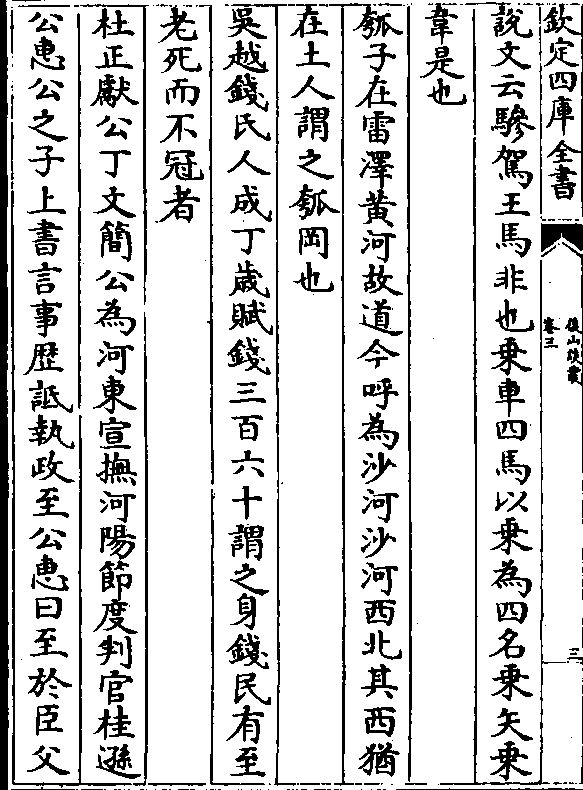 欽定四庫全書
後山談叢
卷三
三
說文云驂駕王馬非也乘車四馬以乘為四名乘矢乘
韋是也
瓠子在雷澤黄河故道今呼為沙河沙河西北其西猶
在土人謂之瓠岡也
吳越錢氏人成丁歲賦錢三百六十謂之身錢民有至
老死而不冠者
杜正獻公丁文簡公為河東宣撫河陽節度判官桂遜
公惠公之子上書言事歴詆執政至公惠曰至於臣父